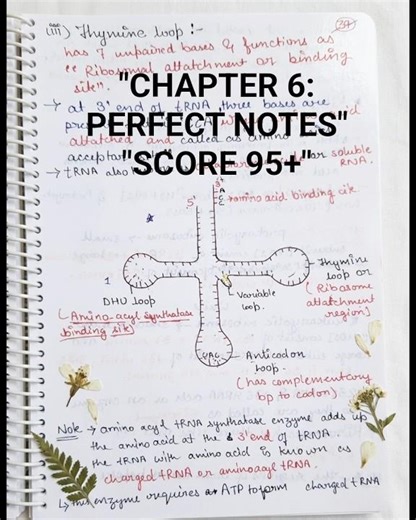 (iii) Thymine loop :-
39
has 7 unpaired bases & functions as
"Ribosomal attatchment or binding
site".
→ at 3' end of tRNA three bases are
"CHAPTER 6:
PERFECT NOTES"
"SCORE 95+"
attatched and called as amino
acceptor
→ tRNA also or soluble
RNA.
3'
A
C
C
amino acid binding site
5'
DHU loop
(Amino-acyl synthatase
binding site)
Variable
loop.
Thymine
loop or
(Ribosome
attatchment
region)
UAC
Anticodon
loop.
(has complementary
bp to codon)
Note → amino acyl tRNA synthatase enzyme adds up
the aminoacid at the 3' end of tRNA.
the tRNA with amino acid is known as
charged tRNA or aminoacyl tRNA
this enzyme requires ATP to form charged tRNA